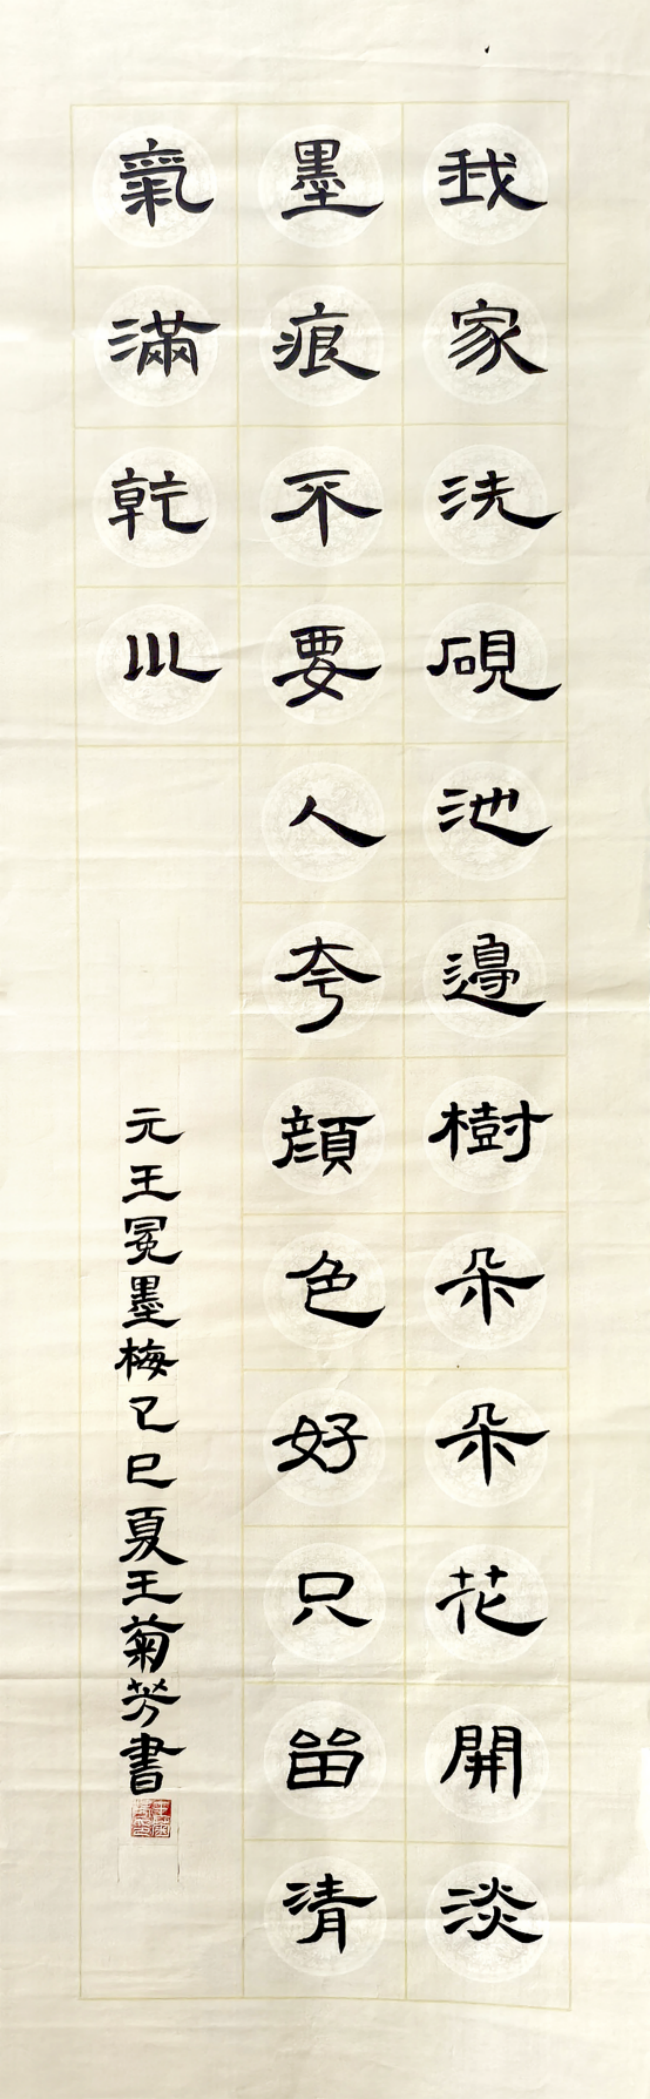 我家洗硯池邊樹朵朵花開淡
墨痕不要人夸顔色好只留清
氣滿乾川
元王冕墨梅乙巳夏王菊芳書